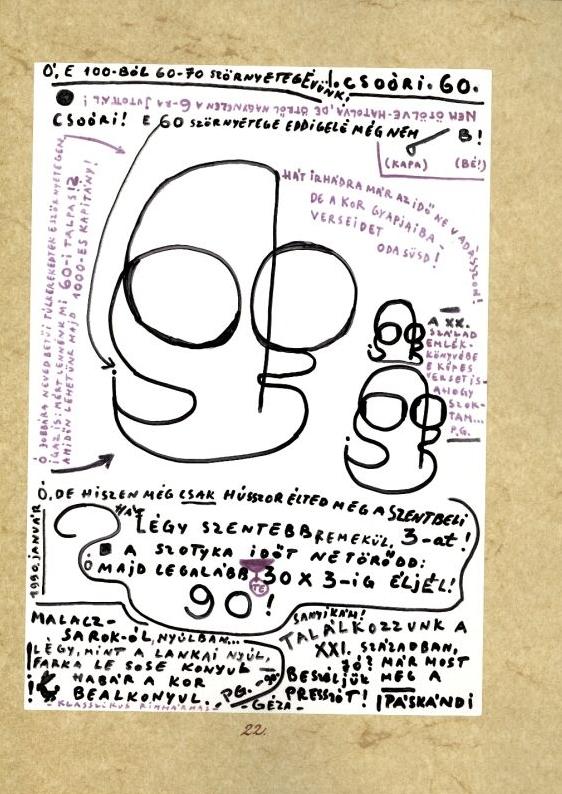 Ó, E 100-BÓL 60-70 SZÖRNYETEGEVÜNK, CSOÓRI. 60.
NEM ÖTÖLVE-HATOLVA, DE ÖTRŐL NAGYNEHZEN A 6-RA JUTOTTÁL!
CSOÓRI! E 60 SZÖRNYETEGE EDDIGELÉ MÉG NEM B!
(KAPA) (BÉ!)
HÁT ÍRHÁDRA MÁR AZ IDŐ NE VADÁSSZON!
DE A KOR GYAPJAIBA
VERSEIDET
ODASÜSD!
Ó JOBBÁRA NEVED BETŰI TÚLKEREKEDTEK E SZÖRNYETEGEN,
IGAZ IS: MÉRT LENNÉNK MI 60-I TALPAS!?
AMIDŐN LEHETÜNK MAJD 1000-ES KAPITÁNY!
A XX.
SZÁZAD
EMLÉK-
KÖNYVÉBE
E KÉPES
VERSET IS
AHOGY
SZOK-
TAM...
P.G.
Ó, DE HISZEN MÉG CSAK HÚSSZOR ÉLTED MEG A SZENTBELI
HÁT LÉGY SZENTEBB REMEKÜL, 3-at!
A SZOTYKA IDŐT NE TÖRŐDD:
Ó MAJD LEGALÁBB 30 X 3-IG ÉLJÉL!
TE
90!
1990. JANUÁR
MALACZ-
SAROK-ÓL, NYÚLBAN...
LÉGY, MINT A LANKAI NYÚL,
FARKA LE SOSE KONYUL
HABÁR A KOR
BEALKONYUL. P.G.
KLASSZIKUS RÍMHÁRMAS
SANYIKÁM!
TALÁLKOZZUNK A
XXI. SZÁZADBAN,
JÓ? MÁR MOST
BESZÉLJÜK MEG A
PRESSZÓT! PÁSKÁNDI
- GÉZA -
22.